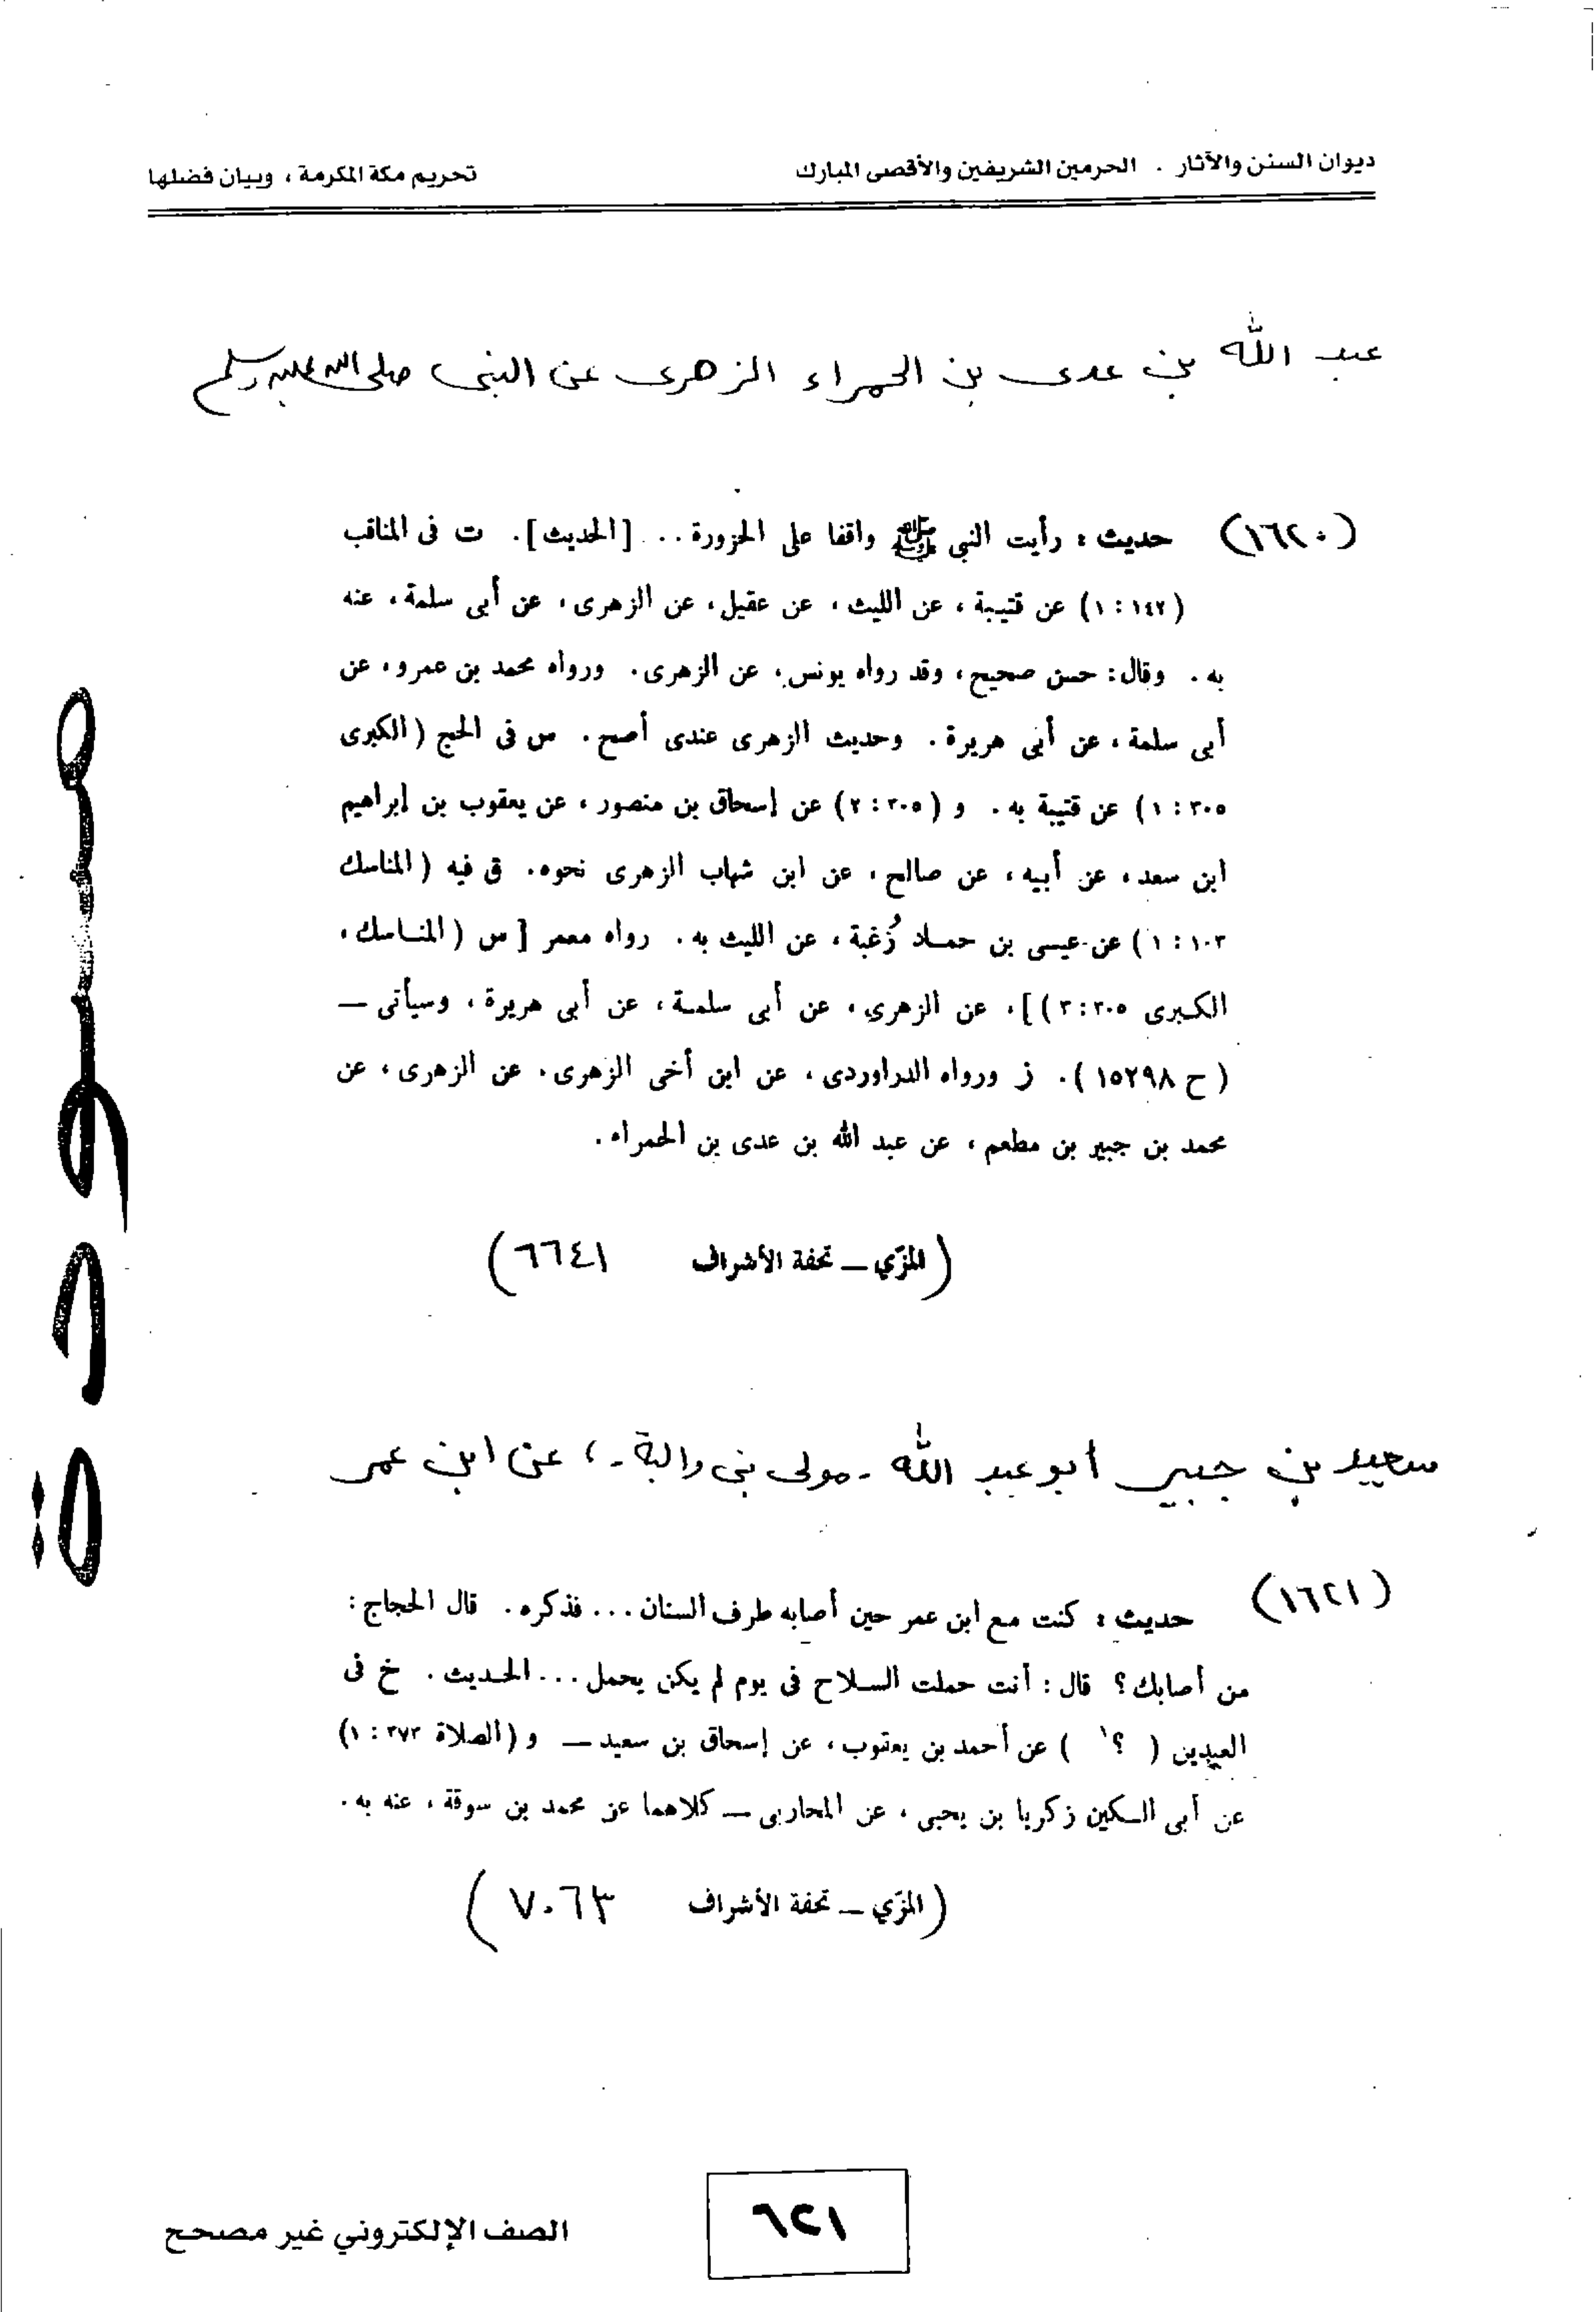 ديوان السنن والآثار . الحرمين الشريفين والأقصى المبارك
تحريم مكة المكرمة ، وبيان فضلها
عبد الله بن عدى بن الحمراء الزهرى عن النبى صلى الله عليه وسلم
(١٦٢٠) حديث : رأيت النبي ﷺ واقفا على الحزورة .. [الحديث]. ت فى المناقب
(١٤٢ : ١) عن قتيبة ، عن الليث ، عن عقيل ، عن الزهرى ، عن أبى سلمة ، عنه
به . وقال : حسن صحيح ، وقد رواه يونس ، عن الزهرى . ورواه محمد بن عمرو ، عن
أبى سلمة ، عن أبى هريرة . وحديث الزهرى عندى أصح . س فى الحج ( الكبرى
٣٠٥ : ١) عن قتيبة به . و ( ٣٠٥ : ٢) عن إسحاق بن منصور ، عن يعقوب بن إبراهيم
ابن سعد ، عن أبيه ، عن صالح ، عن ابن شهاب الزهرى نحوه . ق فيه ( المناسك
١٠٣ : ١) عن عيسى بن حماد زُغبة ، عن الليث به . رواه معمر [ س ( المناسك ،
الكبرى ٣٠٥ : ٣)] ، عن الزهرى ، عن أبى سلمة ، عن أبى هريرة ، وسيأتى —
( ح ١٥٢٩٨ ) . ز ورواه الدراوردى ، عن ابن أخى الزهرى ، عن الزهرى ، عن
محمد بن جبير بن مطعم ، عن عبد الله بن عدى بن الحمراء .
(المزّي — تحفة الأشراف ٦٦٤١)
سعيد بن جبير أبو عبد الله - مولى بنى والبة - ، عن ابن عمر
(١٦٢١) حديث : كنت مع ابن عمر حين أصابه طرف السنان ... فذكره . قال الحجاج :
من أصابك ؟ قال : أنت حملت السلاح فى يوم لم يكن يحمل ... الحديث . خ فى
العيدين ( ؟١ ) عن أحمد بن يعقوب ، عن إسحاق بن سعيد — و (الصلاة ٣٧٣ : ١)
عن أبى السكين زكريا بن يحيى ، عن المحاربى — كلاهما عن محمد بن سوقة ، عنه به .
(المزّي — تحفة الأشراف ٧٠٦٣)
مسودة
٦٢١
الصف الإلكتروني غير مصحح